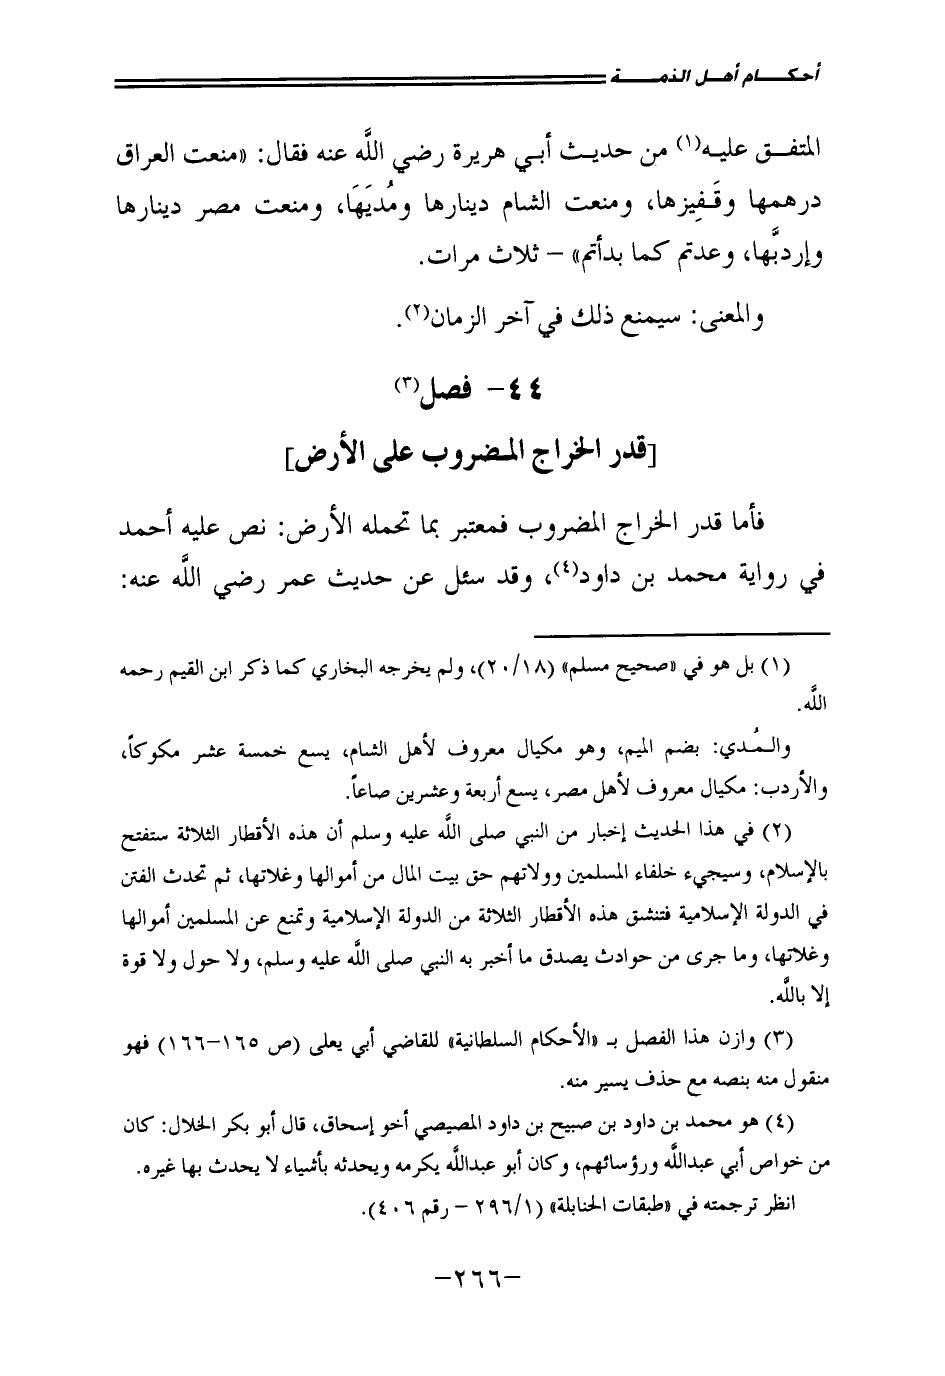 أحكـــام أهـل الذمــــة
المتفـق عليـه(١) من حديـث أبـي هريرة رضي اللَّه عنه فقال: «منعت العراق
درهمها وقَـفِيزها، ومنعت الشام دينارها ومُديَهَا، ومنعت مصر دينارها
وإردبَّها، وعدتم كما بدأتم» – ثلاث مرات.
والمعنى: سيمنع ذلك في آخر الزمان(٢).
٤٤- فصل(٣)
[قدر الخراج المضروب على الأرض]
فأما قدر الخراج المضروب فمعتبر بما تحمله الأرض: نص عليه أحمد
في رواية محمد بن داود(٤)، وقد سئل عن حديث عمر رضي اللَّه عنه:
(١) بل هو في «صحيح مسلم» (٢٠/١٨)، ولم يخرجه البخاري كما ذكر ابن القيم رحمه
اللَّه.
والـمُدي: بضم الميم، وهو مكيال معروف لأهل الشام، يسع خمسة عشر مكوكاً،
والأردب: مكيال معروف لأهل مصر، يسع أربعة وعشرين صاعاً.
(٢) في هذا الحديث إخبار من النبي صلى اللَّه عليه وسلم أن هذه الأقطار الثلاثة ستفتح
بالإسلام، وسيجيء خلفاء المسلمين وولاتهم حق بيت المال من أموالها وغلاتها، ثم تحدث الفتن
في الدولة الإسلامية فتنشق هذه الأقطار الثلاثة من الدولة الإسلامية وتمنع عن المسلمين أموالها
وغلاتها، وما جرى من حوادث يصدق ما أخبر به النبي صلى اللَّه عليه وسلم، ولا حول ولا قوة
إلا باللَّه.
(٣) وازن هذا الفصل بـ «الأحكام السلطانية» للقاضي أبي يعلى (ص ١٦٥-١٦٦) فهو
منقول منه بنصه مع حذف يسير منه.
(٤) هو محمد بن داود بن صبيح بن داود المصيصي أخو إسحاق، قال أبو بكر الخلال: كان
من خواص أبي عبداللَّه ورؤسائهم، وكان أبو عبداللَّه يكرمه ويحدثه بأشياء لا يحدث بها غيره.
انظر ترجمته في «طبقات الحنابلة» (٢٩٦/١ – رقم ٤٠٦).
-٢٦٦-